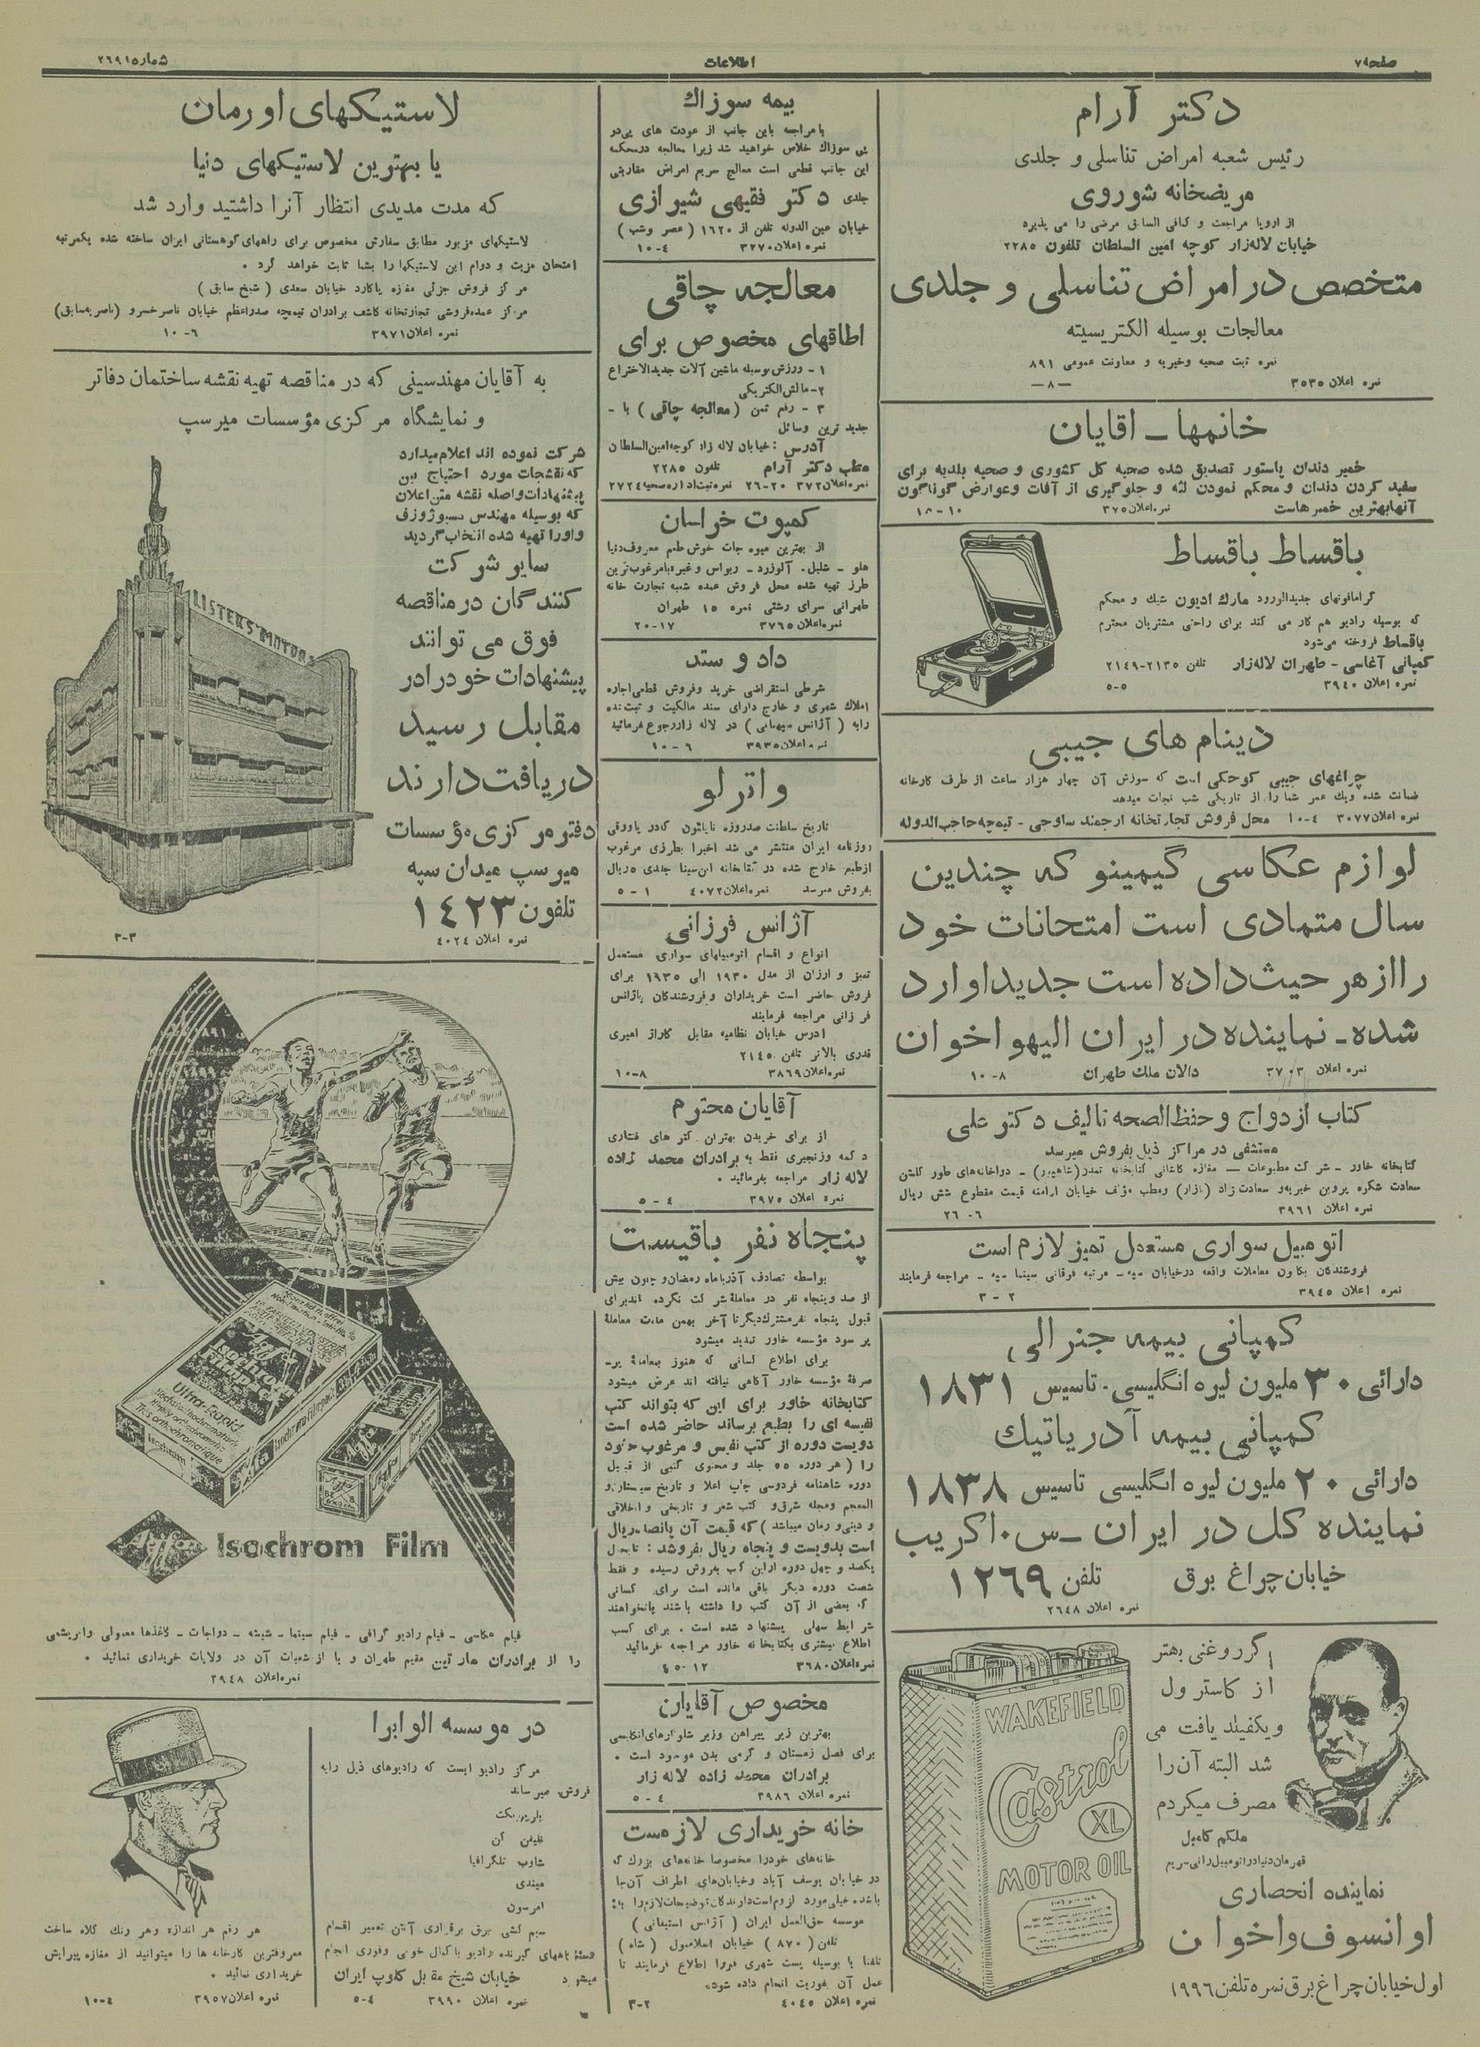 صفحه ۷
اطلاعات
شماره ۲۶۹۱۵
دکتر آرام
رئیس شعبه امراض تناسلی و جلدی
مریضخانه شوروی
از اروپا مراجعت و کمافی السابق مرضی را می پذیرد
خیابان لاله‌زار کوچه امین السلطان تلفون ۲۲۸۵
متخصص در امراض تناسلی و جلدی
معالجات بوسیله الکتریسیته
نمره ثبت صحیه و خیریه و معاونت عمومی ۸۹۱
نمره اعلان ۳۵۳۵ —۸—
خانمها ـ اقایان
خمیر دندان پاستور تصدیق شده صحیه کل کشوری و صحیه بلدیه برای
سفید کردن دندان و محکم نمودن لثه و جلوگیری از آفات وعوارض گوناگون
آنها بهترین خمیرهاست نمره اعلان ۳۷۵
باقساط باقساط
گرامافونهای جدیدالورود مارك ادیون شیك و محکم
که بوسیله رادیو هم کار می کند برای راحتی مشتریان محترم
باقساط فروخته می‌شود
کمپانی آغاسی - طهران لاله‌زار تلفن ۲۱۳۵-۲۱۴۹
نمره اعلان ۳۹۴۰ ۵-۵
دینام های جیبی
چراغهای جیبی کوچکی است که سوزش آن چهار هزار ساعت از طرف کارخانه
ضمانت شده ویك عمر شما را از تاریکی شب نجات میدهد
نمره اعلان ۳۰۷۷ ۴-۱۰ محل فروش تجارتخانه ارجمند ساوجی - تیمچه حاجب‌الدوله
لوازم عکاسی گیمینو که چندین
سال متمادی است امتحانات خود
را از هر حیث داده است جدیدا وارد
شده ـ نماینده در ایران الیهو اخوان
دالان ملك طهران
نمره اعلان ۳۷۰۳ ۸-۱۰
کتاب ازدواج و حفظ‌الصحه تالیف دکتر علی
مستشفی در مراکز ذیل بفروش میرسد
کتابخانه خاور - شرکت مطبوعات — مغازه کاشانی کتابخانه تمدن (شاهپور) - دواخانه‌های طور گلشن
سعادت شکره پروین خیریه و سعادت زاد (بازار) ومطب مؤلف خیابان ارامنه قیمت مقطوع شش ریال
نمره اعلان ۳۹۶۱ ۶-۲۶
اتومبیل سواری مستعمل تمیز لازم است
فروشندگان بکانون معاملات واقعه در خیابان سپه - مرتبه فوقانی سینما سپه - مراجعه فرمایند
نمره اعلان ۳۹۴۵ ۲-۳
کمپانی بیمه جنرالی
دارائی ۳۰ ملیون لیره انگلیسی. تاسیس ۱۸۳۱
کمپانی بیمه آدریاتیك
دارائی ۲۰ ملیون لیره انگلیسی تاسیس ۱۸۳۸
نماینده کل در ایران ـ س. اکریب
خیابان چراغ برق تلفن ۱۲۶۹
نمره اعلان ۲۶۴۸
اگر روغنی بهتر
از کاسترول
ویکفیلد یافت می
شد البته آن را
مصرف میکردم
ملکم کامبل
قهرمان دنیا در اتومبیل رانی سریع
نماینده انحصاری
اوانسوف و اخوان
اول خیابان چراغ برق نمره تلفن ۱۹۹۶
WAKEFIELD
Castrol
XL
MOTOR OIL
بیمه سوزاك
با مراجعه باین جانب از عودت های پی‌در
پی سوزاك خلاص خواهید شد زیرا معالجه در محکمه
این جانب قطعی است معالج سریع امراض مقاربتی
جلدی دکتر فقیهی شیرازی
خیابان عین الدوله تلفن از ۱۶۲۰ (عصر وشب)
نمره اعلان ۳۲۷۰ ۴-۱۰
معالجه چاقی
اطاقهای مخصوص برای
۱ - ورزش بوسیله ماشین آلات جدیدالاختراع
۲- مالش الکتریکی
۳ - رفع ثمن (معالجه چاقی) با -
جدید ترین وسائل
آدرس: خیابان لاله زار کوچه امین‌السلطان
مطب دکتر آرام تلفون ۲۲۸۵
نمره اعلان ۳۷۲ ۲۰-۲۶ نمره ثبت اداره صحیه ۲۷۲۴
کمپوت خراسان
از بهترین میوه جات خوش طعم معروف دنیا
هلو - شلیل. آلوزرد - ریواس و غیره بامرغوب‌ترین
طرز تهیه شده محل فروش عمده شعبه تجارت خانه
طهرانی سرای رشتی نمره ۱۵ طهران
نمره اعلان ۳۷۶۵ ۱۷-۲۰
داد و ستد
شرطی استقراضی خرید وفروش قطعی اجاره
املاك شهری و خارج دارای سند مالکیت و ثبت شده
را به (آژانس میهمانی) در لاله زار رجوع فرمائید
نمره اعلان ۳۹۳۵ ۶-۱۰
واترلو
تاریخ سلطنت صدروزه ناپلئون که در پاورقی
روزنامه ایران منتشر می شد اخیرا بطرزی مرغوب
از طبع خارج شده در کتابخانه ابن‌سینا جلدی ۵ ریال
بفروش میرسد نمره اعلان ۴۰۷۲ ۱-۵
آژانس فرزانی
انواع و اقسام اتومبیلهای سواری مستعمل
تمیز و ارزان از مدل ۱۹۳۰ الی ۱۹۳۵ برای
فروش حاضر است خریداران و فروشندگان باژانس
فرزانی مراجعه فرمایند
ادرس خیابان نظامیه مقابل گاراژ امیری
قدری بالاتر تلفن ۲۱۴۵
نمره اعلان ۳۸۶۹ ۸-۱۰
آقایان محترم
از برای خریدن بهترین کتر های فشاری
دکمه وزنجیری فقط به برادران محمد زاده
لاله زار مراجعه بفرمائید.
نمره اعلان ۳۹۷۵ ۴-۵
پنجاه نفر باقیست
بواسطه تصادف آذرماه رمضان و چون بیش
از صد و پنجاه نفر در معامله شرکت نکرده اند برای
قبول پنجاه نفر مشترك دیگر تا آخر بهمن مدت معامله
پر سود مؤسسه خاور تمدید میشود
برای اطلاع کسانی که هنوز بمعامله پر-
صرفه مؤسسه خاور آگاهی نیافته اند عرض میشود
کتابخانه خاور برای این که بتواند کتب
نفیسه ای را بطبع برساند حاضر شده است
دویست دوره از کتب نفیس و مرغوب خود
را (هر دوره ۵۵ جلد و محتوی کتبی از قبیل
دوره شاهنامه فردوسی چاپ اعلا و تاریخ سیستان و
المعجم ومجله شرق و کتب شعر و تاریخی و اخلاقی
و دینی و رمان میباشد) که قیمت آن پانصد ریال
است بدویست و پنجاه ریال بفروشد: تا بحال
یکصد و چهل دوره از این کتب بفروش رسیده و فقط
شصت دوره دیگر باقی مانده است برای کسانی
که بعضی از آن کتب را داشته باشند یا نخواهند
شرایط سهلی پیشنهاد شده است. برای کسب
اطلاع بیشتری بکتابخانه خاور مراجعه فرمائید
نمره اعلان ۳۶۸۰
مخصوص آقایان
بهترین زیر پیراهن وزیر شلوارهای انگلیسی
برای فصل زمستان و گرمی بدن موجود است.
برادران محمد زاده لاله زار
نمره اعلان ۳۹۸۶ ۴-۵
خانه خریداری لازمست
خانه‌های خودرا مخصوصا خانه‌های بزرك که
در خیابان یوسف آباد وخیابان‌های اطراف آن‌جا
باشد خیلی مورد لزوم است دارندگان توضیحات لازم را به:
موسسه حق‌العمل ایران (آژانس استپفانی)
تلفن (۸۷۰) خیابان اسلامبول (شاه)
تلفنا یا بوسیله پست شهری فورا اطلاع فرمایند تا
عمل آن بفوریت انجام داده شود.
نمره اعلان ۴۰۴۵ ۲-۳
لاستیکهای اورمان
یا بهترین لاستیکهای دنیا
که مدت مدیدی انتظار آنرا داشتید وارد شد
لاستیکهای مزبور مطابق سفارش مخصوص برای راههای کوهستانی ایران ساخته شده یکمرتبه
امتحان مزیت و دوام این لاستیکها را بشما ثابت خواهد کرد.
مرکز فروش جزئی مغازه پاکارد خیابان سعدی (شیخ سابق)
مرکز عمده‌فروشی تجارتخانه کاشف برادران تیمچه صدراعظم خیابان ناصرخسرو (ناصریه سابق)
نمره اعلان ۳۹۷۱ ۶-۱۰
به آقایان مهندسینی که در مناقصه تهیه نقشه ساختمان دفاتر
و نمایشگاه مرکزی مؤسسات میرسپ
شرکت نموده اند اعلام میدارد
که نقشجات مورد احتیاج بین
پیشنهادات واصله نقشه متن اعلان
که بوسیله مهندس
و اورا تهیه شده انتخاب گردید
سایر شرکت
کنندگان در مناقصه
فوق می توانند
پیشنهادات خود را در
مقابل رسید
دریافت دارند
دفتر مرکزی مؤسسات
میرسپ میدان سپه
تلفون ۱۴۲۳
نمره اعلان ۴۰۲۴
۳-۳
LISTERS' MOTORS
Agfa
Isochrom
Ultra-Rapid
Agfa Isochrom Film
فیلم عکاسی - فیلم رادیو گرافی - فیلم سینما - شیشه - دواجات - کاغذها معمولی و ابریشمی
را از برادران مارتین مقیم طهران و یا از شعبات آن در ولایات خریداری نمائید.
نمره اعلان ۳۹۴۸
در موسسه الوابرا
مرکز رادیو ایست که رادیوهای ذیل را به
فروش میرساند
تلیفن کن
شاوب تلگرافیا
میندی
امرسون
سیم کشی برق برقراری آنتن تعمیر اقسام
دستگاههای گیرنده رادیو با کمال خوبی وفوری انجام
میشود خیابان شیخ مقابل کلوپ ایران
نمره اعلان ۳۹۹۰ ۴-۵
هر رقم هر اندازه وهر رنك کلاه ساخت
معروفترین کارخانه ها را میتوانید از مغازه پیرایش
خریداری نمائید.
نمره اعلان ۳۹۵۷ ۴-۱۰